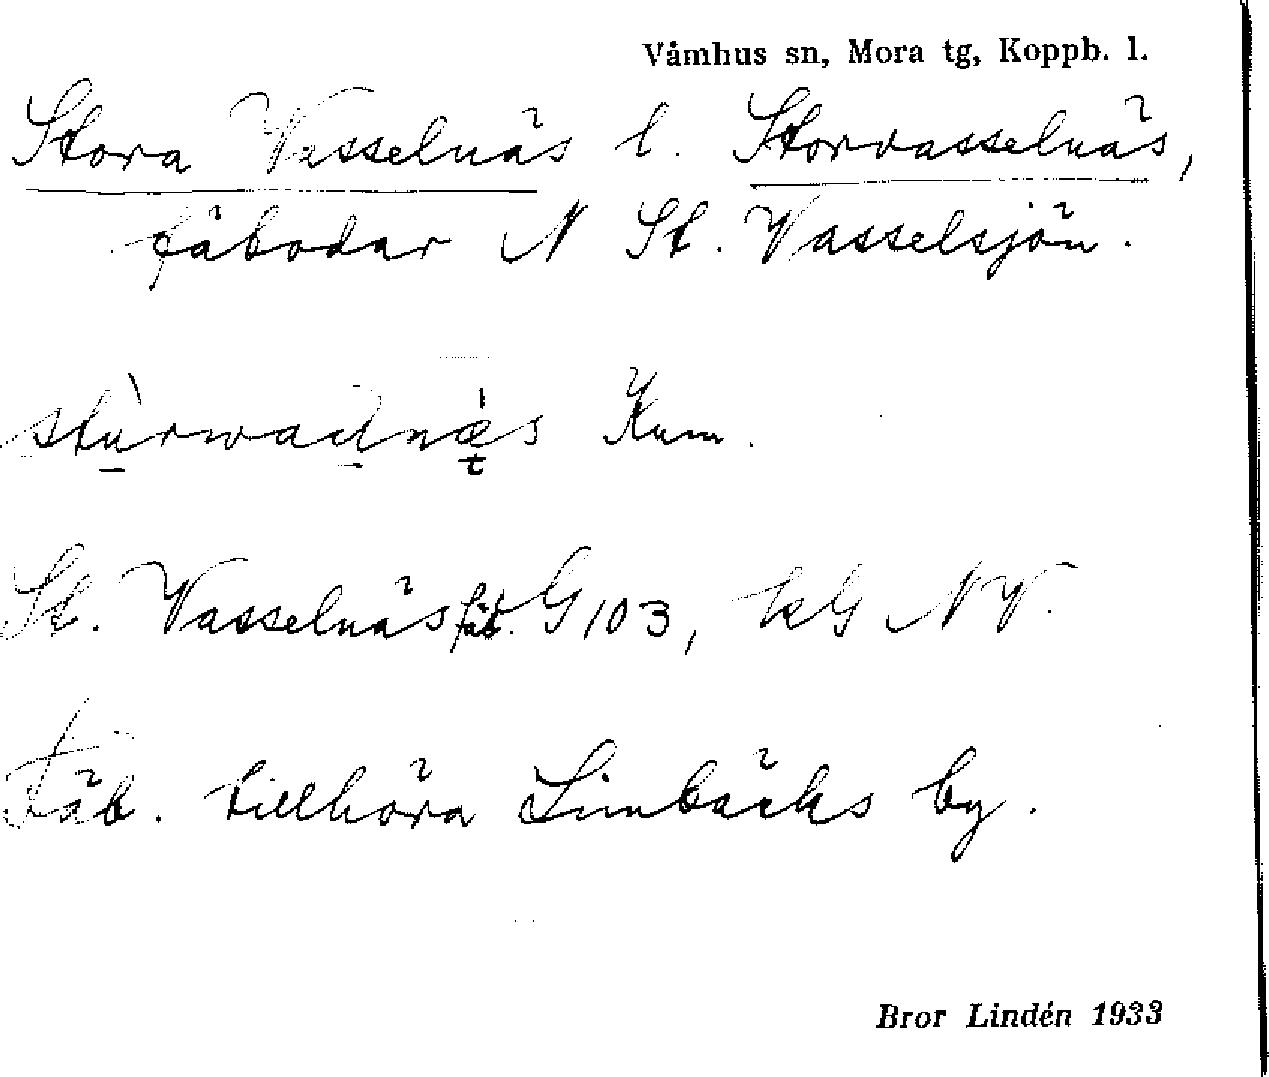 Våmhus sn, Mora tg, Koppb. l.
Stora Vasselnäs l. Storvasselnäs,
fäbodar N St. Vasselsjön.
Kum.
St. Vasselnäs fäb. G 103, kG NV.
Fäb. tillhöra Limbäcks by.
Bror Lindén 1933